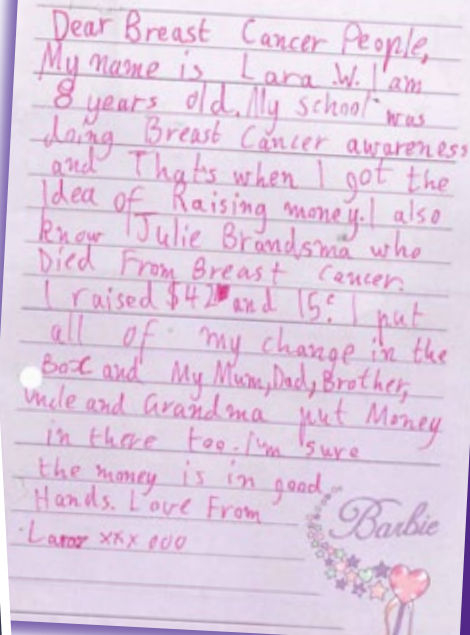 Dear Breast Cancer People,
My name is Lara W. I am
8 years old. My school was
doing Breast Cancer awareness
and That's when I got the
Idea of Raising money. I also
know Julie Brandsma who
Died From Breast Cancer.
I raised $42 and 15c I put
all of my change in the
Box and My Mum, Dad, Brother,
Uncle and Grandma put Money
in there too. I'm sure
the money is in good
Hands. Love From
Lara xxx ooo
Barbie